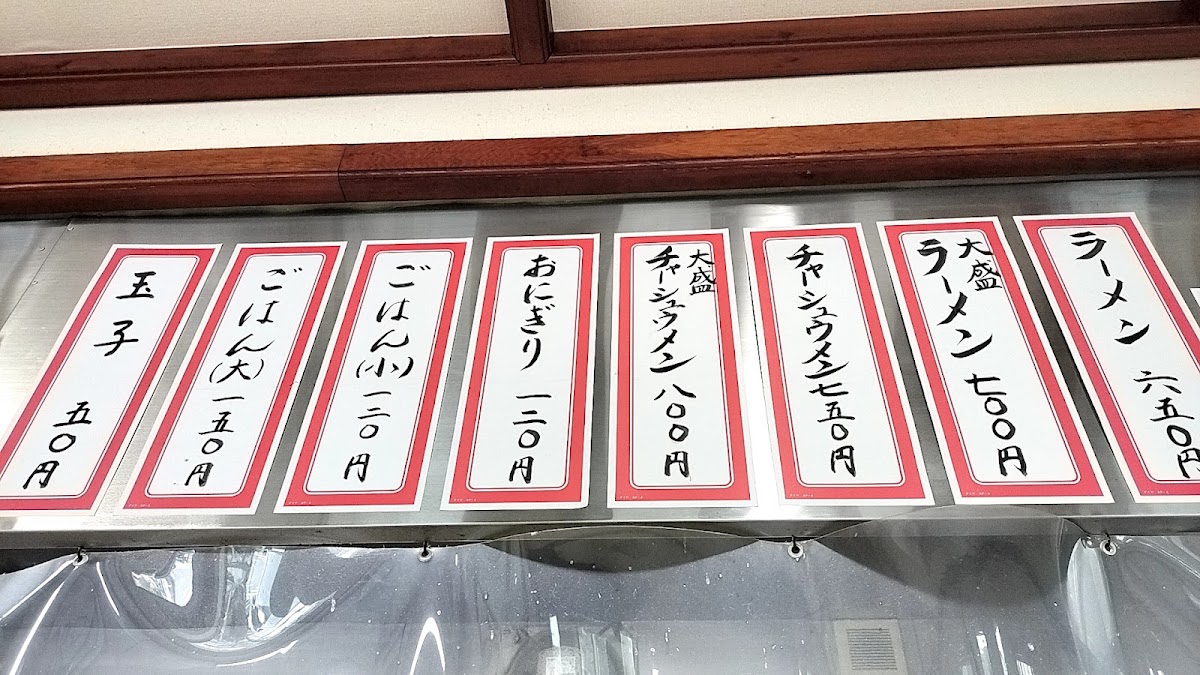 ラーメン 六五〇円
大盛
ラーメン 七〇〇円
チャーシュウメン 七五〇円
大盛
チャーシュウメン 八〇〇円
おにぎり 一二〇円
ごはん(小) 一二〇円
ごはん(大) 一五〇円
玉子 五〇円